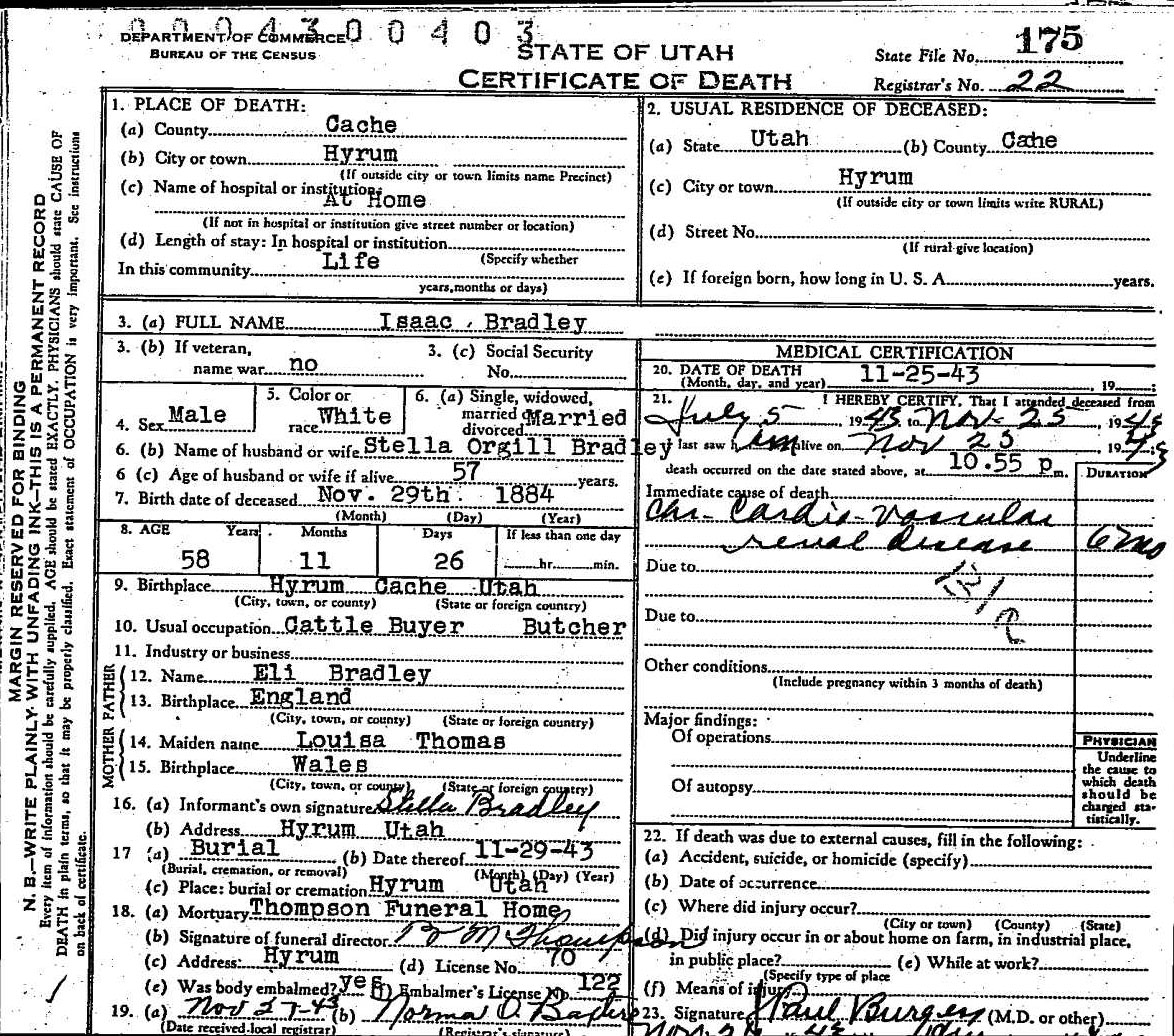 0004300403
DEPARTMENT OF COMMERCE
BUREAU OF THE CENSUS
STATE OF UTAH
CERTIFICATE OF DEATH
State File No. 175
Registrar's No. 22
MARGIN RESERVED FOR BINDING
N. B.—WRITE PLAINLY WITH UNFADING INK—THIS IS A PERMANENT RECORD
Every item of information should be carefully supplied. AGE should be stated EXACTLY. PHYSICIANS should state CAUSE OF
DEATH in plain terms, so that it may be properly classified. Exact statement of OCCUPATION is very important. See instructions
on back of certificate.
1. PLACE OF DEATH:
(a) County Cache
(b) City or town Hyrum
(If outside city or town limits name Precinct)
(c) Name of hospital or institution:
At Home
(If not in hospital or institution give street number or location)
(d) Length of stay: In hospital or institution
(Specify whether
In this community Life
years, months or days)
2. USUAL RESIDENCE OF DECEASED:
(a) State Utah (b) County Cahe
(c) City or town Hyrum
(If outside city or town limits write RURAL)
(d) Street No.
(If rural give location)
(e) If foreign born, how long in U. S. A. years.
3. (a) FULL NAME Isaac, Bradley
3. (b) If veteran,
name war no
3. (c) Social Security
No.
4. Sex Male
5. Color or
race White
6. (a) Single, widowed,
married
divorced Married
6. (b) Name of husband or wife Stella Orgill Bradley
6 (c) Age of husband or wife if alive 57 years.
7. Birth date of deceased Nov. 29th. 1884
(Month) (Day) (Year)
8. AGE Years Months Days If less than one day
58 11 26 hr. min.
9. Birthplace Hyrum Cache Utah
(City, town, or county) (State or foreign country)
10. Usual occupation Cattle Buyer Butcher
11. Industry or business
FATHER
12. Name Eli Bradley
13. Birthplace England
(City, town, or county) (State or foreign country)
MOTHER
14. Maiden name Louisa Thomas
15. Birthplace Wales
(City, town, or county) (State or foreign country)
16. (a) Informant's own signature Stella Bradley
(b) Address Hyrum Utah
17 (a) Burial (b) Date thereof 11-29-43
(Burial, cremation, or removal) (Month) (Day) (Year)
(c) Place: burial or cremation Hyrum Utah
18. (a) Mortuary Thompson Funeral Home
(b) Signature of funeral director M Thompson
(c) Address: Hyrum (d) License No. 70
(e) Was body embalmed? yes (f) Embalmer's License No. 122
19. (a) Nov 27-43 (b) Norma O.
(Date received local registrar) (Registrar's signature)
MEDICAL CERTIFICATION
20. DATE OF DEATH
(Month, day, and year) 11-25-43 19
21. I HEREBY CERTIFY, That I attended deceased from
July 5 1943 to Nov. 25, 1943
I last saw him alive on Nov 25 1943
death occurred on the date stated above, at 10.55 p m.
DURATION
Immediate cause of death
Chr- Cardio-Vascular
renal disease 6 mo
Due to
Due to
Other conditions
(Include pregnancy within 3 months of death)
Major findings:
Of operations
Of autopsy
PHYSICIAN
Underline
the cause to
which death
should be
charged sta-
tistically.
22. If death was due to external causes, fill in the following:
(a) Accident, suicide, or homicide (specify)
(b) Date of occurrence
(c) Where did injury occur?
(City or town) (County) (State)
(d) Did injury occur in or about home on farm, in industrial place,
in public place? (e) While at work?
(Specify type of place
(f) Means of injury
23. Signature Paul Burgess (M.D. or other)